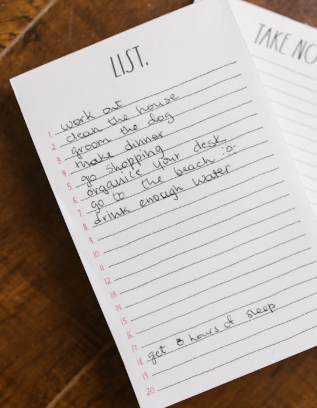 LIST.
TAKE NO
1. work out
2. clean the house
3. groom the dog
4. make dinner
5. go shopping
6. organise your desk
7. go to the beach :o:
8. drink enough water
9.
10.
11.
12.
13.
14.
15.
16.
17.
18. get 8 hours of sleep
19.
20.